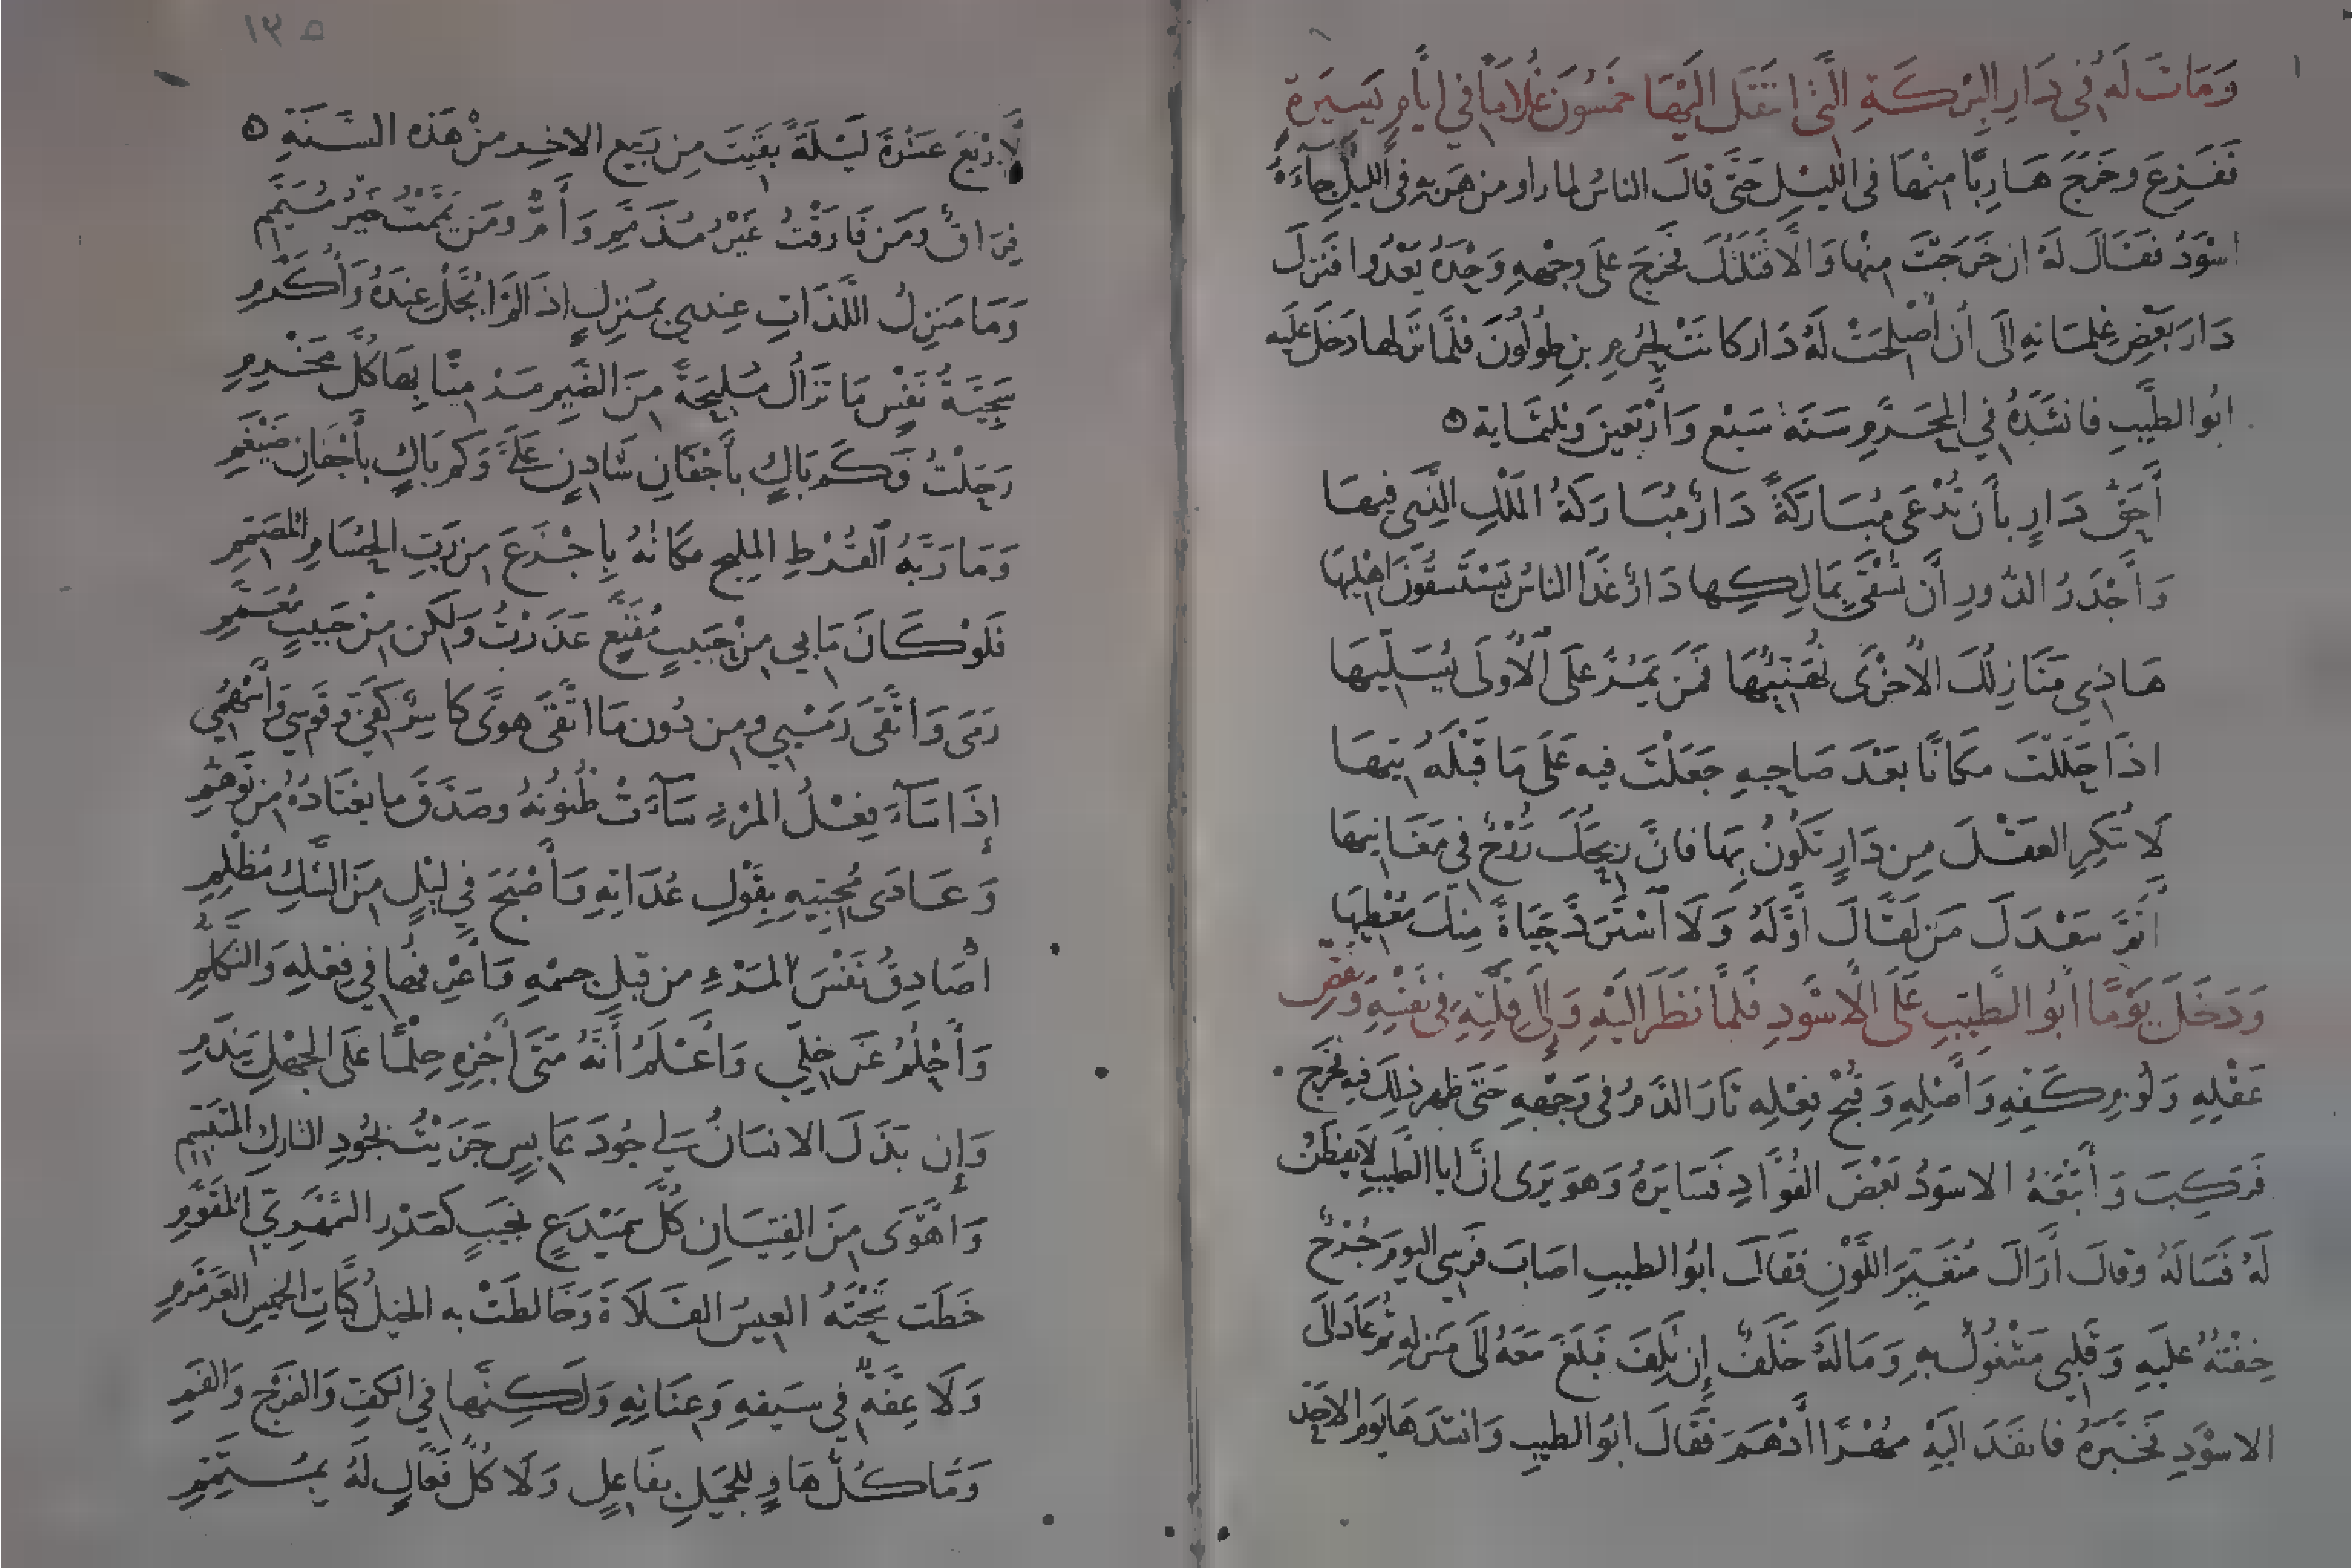 وَمَاتَ لَهُ فِي دَارِ البِرْكَةِ الَّتِي انتَقَلَ اِلَيْهَا خَمْسُونَ غُلَامًا فِي اَيَّامٍ يَسِيرَةٍ
فَفَزِعَ وخَرَجَ هَارِبًا مِنْهَا فى الليْلِ حَتَّى قالَ الناسُ لما راو من هَرَبِهِ فى الليلِ جاءَهُ
اسْوَدُ فَقَالَ لَهُ ان خَرَجْتَ مِنْهَا وَالَّا قَتَلْتُكَ فَخَرَجَ عَلَى وجْهِهِ وَحْدَهُ يَعْدُوا فَنَزلَ
دَارَ بَعْضِ غِلمَانِهِ الَى أن اُصْلِحَتْ لَهُ دَار كانَتْ لِحُرَمِ بنِ طُولُونَ فلَمَّا نَزلها دَخَلَ عَلَيه
ابُو الطَّيِّبِ فانشَدَهُ فِي المحَرَّمِ سَنَةَ سَبْعٍ وَأرْبَعِينَ وثلثمَاية ه
أَحَقُّ دَارٍ بِأَن تُدْعَى مُبَارَكَةً دَارٌ مُبَارَكَةُ المَلْكِ الَّذِي فِيهَا
وَأَجْدَرُ الدُّورِ أَن تُسْقَى بِمَالِكِها دَارٌ غَدَا الناسُ يَسْتَسقُونَ اهْلِيهَا
هَاذِي مَنَازِلُكَ الأُخرَى نُهَنِّئُهَا فَمَن يَمُرُّ عَلَى الأُولَى يُسَلِّيهَا
اذَا حَلَلْتَ مَكانًا بَعْدَ صَاحِبِهِ جَعَلْتَ فيهِ عَلَى مَا قَبْلَهُ تِيهَا
لَا تُنكِرِ العَقْلَ مِن دَارٍ تَكُونُ بِهَا فانَّ رِيحَكَ رُوْحٌ فِي مَغَانِيهَا
أَتَمَّ سَعْدَكَ مَن لَقَّاكَ أَوَّلَهُ وَلَا اسْتَرَدَّ حَيَاةً مِنكَ مُعْطِيهَا
وَدَخَلَ يَوْمًا ابُو الطَّيِّبِ عَلَى الاسْوَدِ فَلَمَّا نَظَرَ الَيْهِ وَالَى قِلَّتِهِ فِى نَفْسِهِ وَنَقْصِ
عَقْلِهِ وَلُؤْمِ كَفِّهِ وَأَصْلِهِ وَقُبْحِ فِعْلِهِ ثَارَ الدَّمُ فى وَجْهِهِ حَتَّى ظهر ذلِكَ فِيهِ فَخَرَجَ
فَرَكِبَ وَأَتْبَعَهُ الاسوَدُ بَعْضَ القُوَّادِ فَسَايَرَهُ وَهوَ يَرَى انَّ ابا الطَّيِّبِ لَا يَفطَنُ
لَهُ فَسَالَهُ وقالَ أرَاكَ مُتَغَيِّرَ اللَّوْنِ فقَالَ ابُو الطيبِ اصَابَ فرَسِي اليومَ جُرْحٌ
خِفْتُهُ عليهِ وَقَلْبِي مَشْغُولٌ بهِ وَمَا لَهُ خَلَفٌ إِن تَلِفَ فَبَلَغَ مَعَهُ الَى مَنزلهِ ثُمَّ عَادَ الَى
الاسْوَدِ فَخَبَّرَهُ فانفَذَ الَيْهِ مُهْرًا أَدْهَمَ فَقَالَ ابُو الطيبِ وَانشَدَهَا يَوم الاحَد
لِأَرْبَعَ عَشْرَةَ لَيْلَةً بَقِيَتْ مِن رَبيع الاخِر مِنْ هَذه السَّنَةِ ه
فِرَاقٌ وَمَن فَارَقْتُ غَيْرُ مُذَمَّمِ وَأَمٌّ ومَن يَمَّمْتُ خَيْرُ مُيَمَّمِ
وَمَا مَنزِلُ اللَّذَّاتِ عِندِي بمَنزِلٍ اِذَا لَمْ اُبَجَّلْ عِندَهُ وَأُكَرَّمِ
سَجِيَّةُ نَفْسٍ مَا تَزَالُ مُلِيحَةً مِنَ الضَّيمِ مَرْمِيًّا بِهَا كُلُّ مَخْرِمِ
رَحَلْتُ فَكَم بَاكٍ بِأَجْفَانِ شَادِنٍ عَلَيَّ وَكَم بَاكٍ بأَجْفانِ ضَيْغَمِ
وَمَا رَبَّةُ القُرْطِ المليحِ مَكانُهُ بِاَجْزَعَ مِن رَبِّ الحُسَامِ المُصَمِّمِ
فَلَوْ كَانَ مَا بي مِنْ حَبيبٍ مُقَنَّعٍ عَذَرْتُ وَلَكن مِنْ حَبيبٍ مُعَمَّمِ
رَمَى وَاتَّقَى رَمْيِي وَمِن دُونِ مَا اتَّقَى هوًى كَاسِرٌ كَفِّي وَقَوسِي وَأَسْهُمِي
إِذَا سَآءَ فِعْلُ المَرْءِ سَآءَتْ ظُنُونُهُ وصَدَّقَ ما يعْتَادُهُ مِن تَوَهُّمِ
وَعَادَى مُحِبِّيهِ بِقَوْلِ عُدَاتِهِ وَأَصْبَحَ فِي لَيْلٍ مِنَ الشَّكِّ مُظْلِمِ
اُصَادِقُ نَفْسَ المَرْءِ من قَبلِ جسْمِهِ وَأَعْرِفُهَا فِي فِعْلِهِ وَالتَّكَلُّمِ
وَأَحْلُمُ عَن خِلِّي وَأَعْلَمُ أَنَّهُ مَتَى أَجْزِهِ حِلْمًا عَلَى الجَهْلِ يَندَمِ
وَإِن بَذَلَ الانسَانُ لِي جُودَ عَابِسٍ جَزَيْتُ بِجُودِ التَّارِكِ المُتَبَسِّمِ
وَأَهْوَى مِنَ الفِتيَانِ كُلَّ سَمَيْدَعٍ نَجيبٍ كَصَدْرِ السَّمْهَرِيِّ المُقَوَّمِ
خَطَت تَحْتَهُ العِيسُ الفَلَاةَ وَخَالَطَتْ بهِ الخَيلُ كَبَّاتِ الخَمِيسِ العَرَمْرَمِ
وَلَا عِفَّةٌ فِي سَيفِهِ وَعِنَانِهِ وَلَكِنَّهَا فِي الكَفِّ وَالفَرْجِ وَالفَمِ
وَمَا كُلُّ هَاوٍ لِلجَمِيلِ بِفَاعِلٍ وَلَا كُلُّ فَعَّالٍ لَهُ بِمُتَمِّمِ